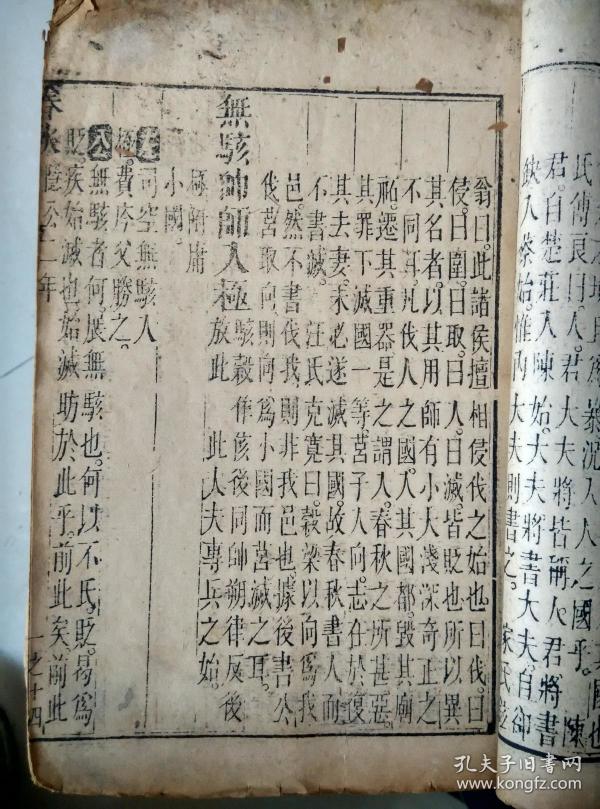 缺入蔡始惟內大夫則書之。家氏
君自楚莊入陳始大夫將書大夫自卻
氏傳良曰人君大夫將皆稱人君將書
況入人之國乎陳
翁曰此諸侯擅相侵伐之始也曰伐曰
侵曰圍曰取曰入曰滅皆貶也所以異
其名者以其用師有小大淺深奇正之
不同耳凡伐人之國入其國都毀其廟
祏遷其重器是之謂入春秋之所甚惡
其罪下滅國一等莒子入向志在於復
其去妻未必遂滅其國故春秋書入而
不書滅。汪氏克寬曰穀梁以向爲我
邑然不書伐我則非我邑也據後書公
伐莒取向則向爲小國而莒滅之耳
無駭帥師入極
駭穀作侅後同帥朔律反後
放此
此大夫專兵之始。
極附庸
小國
左司空無駭入
極。費庈父勝之。
公無駭者何。展無駭也。何以不氏。貶。曷爲
貶。疾始滅也。始滅昉於此乎。前此矣。前此
春秋隱公二年
一之十四
孔夫子旧书网
www.kongfz.com